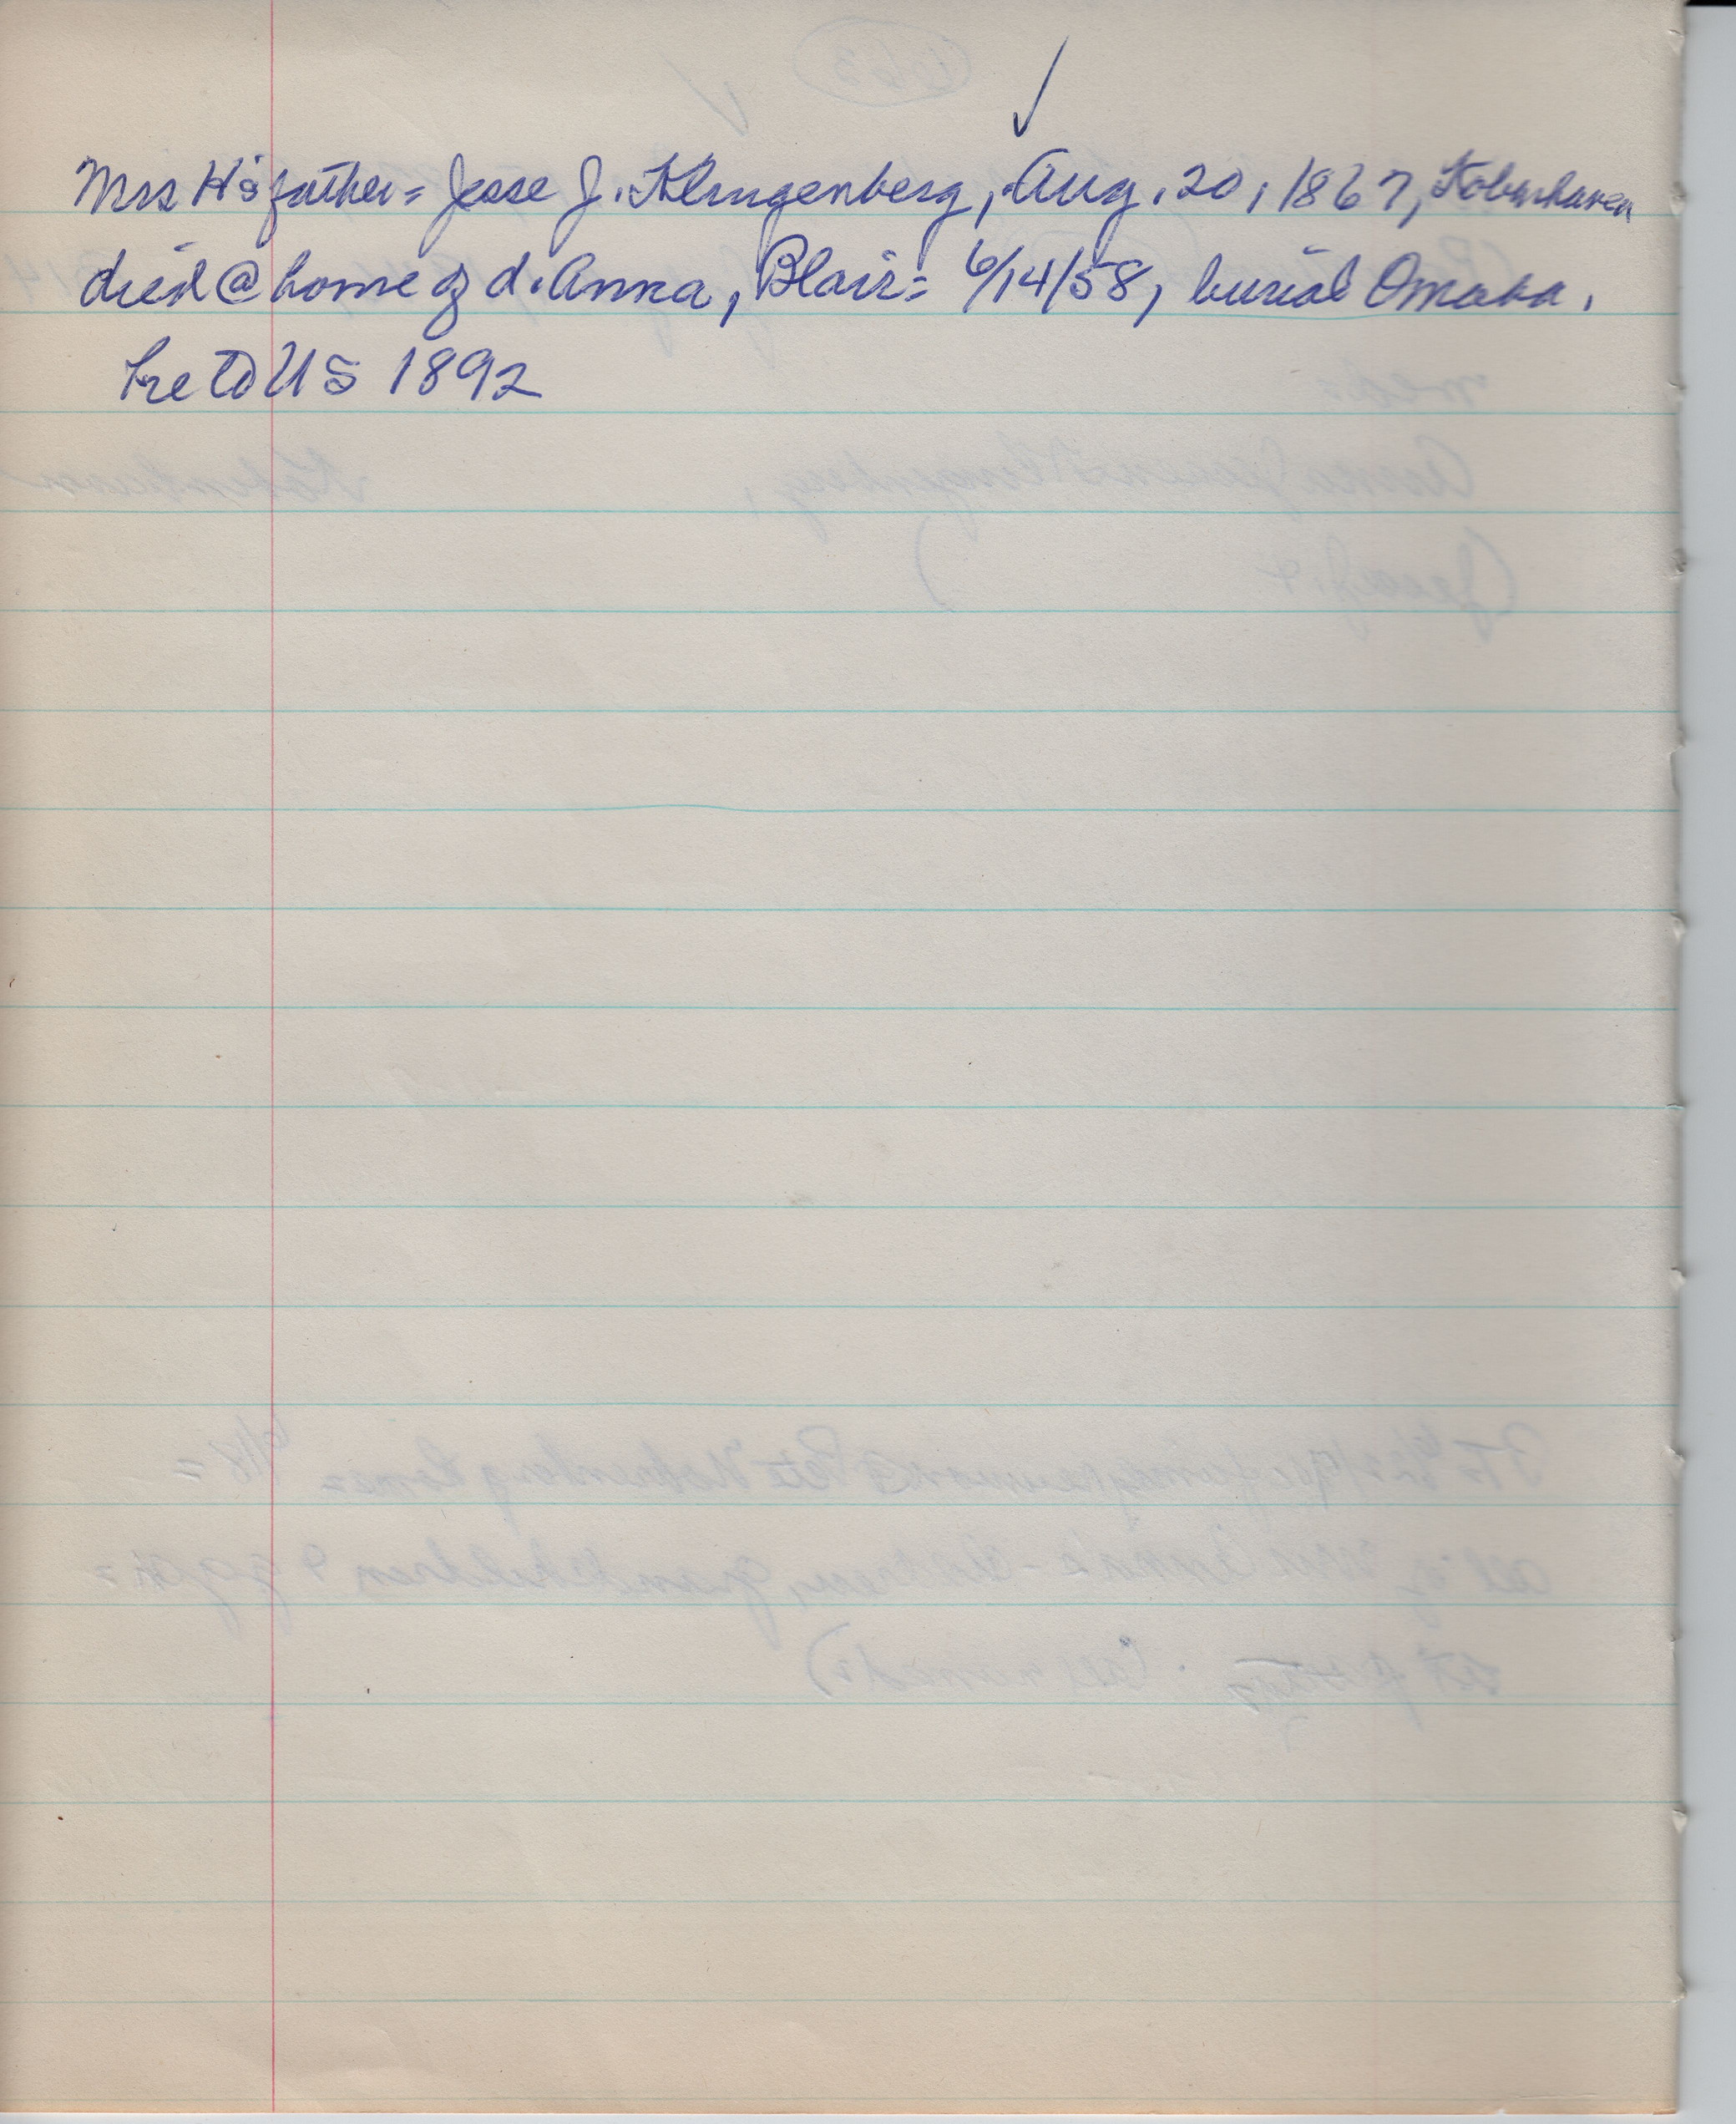 Mrs H's father = Jesse J. Klingenberg, Aug. 20, 1867, Kobenhaven
died @ home of d. Anna, Blair = 6/14/58, burial Omaha.
he to US 1892